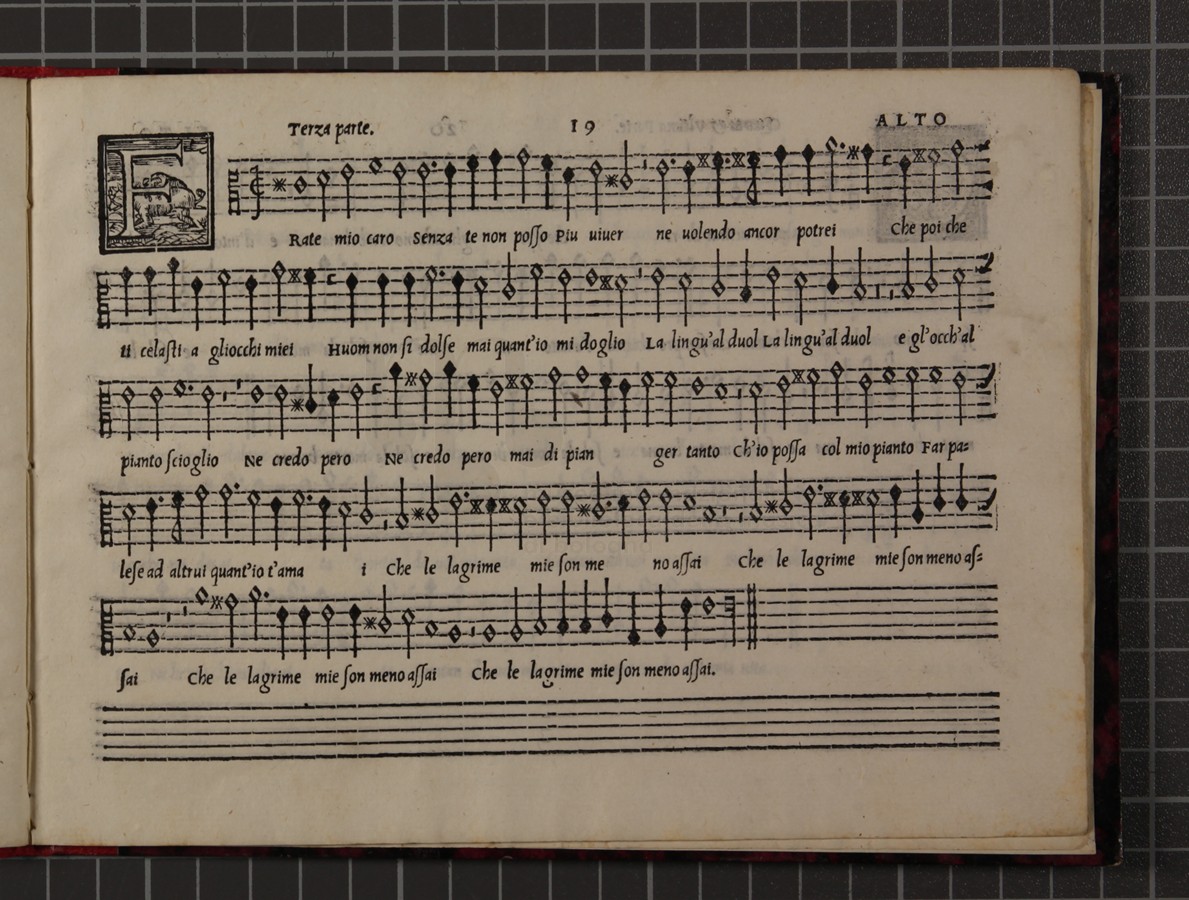 Terza parte. 19 ALTO
F Rate mio caro Senza te non posso Piu uiuer ne uolendo ancor potrei Che poi che
ti celasti a gliocchi miei Huom non si dolse mai quant'io mi doglio La lingu'al duol La lingu'al duol e gl'occh'al
pianto scioglio Ne credo pero Ne credo pero mai di pian ger tanto Ch'io possa col mio pianto Far pa=
lese ad altrui quant'io t'ama i Che le lagrime mie son me no assai Che le lagrime mie son meno as=
sai Che le lagrime mie son meno assai Che le lagrime mie son meno assai.